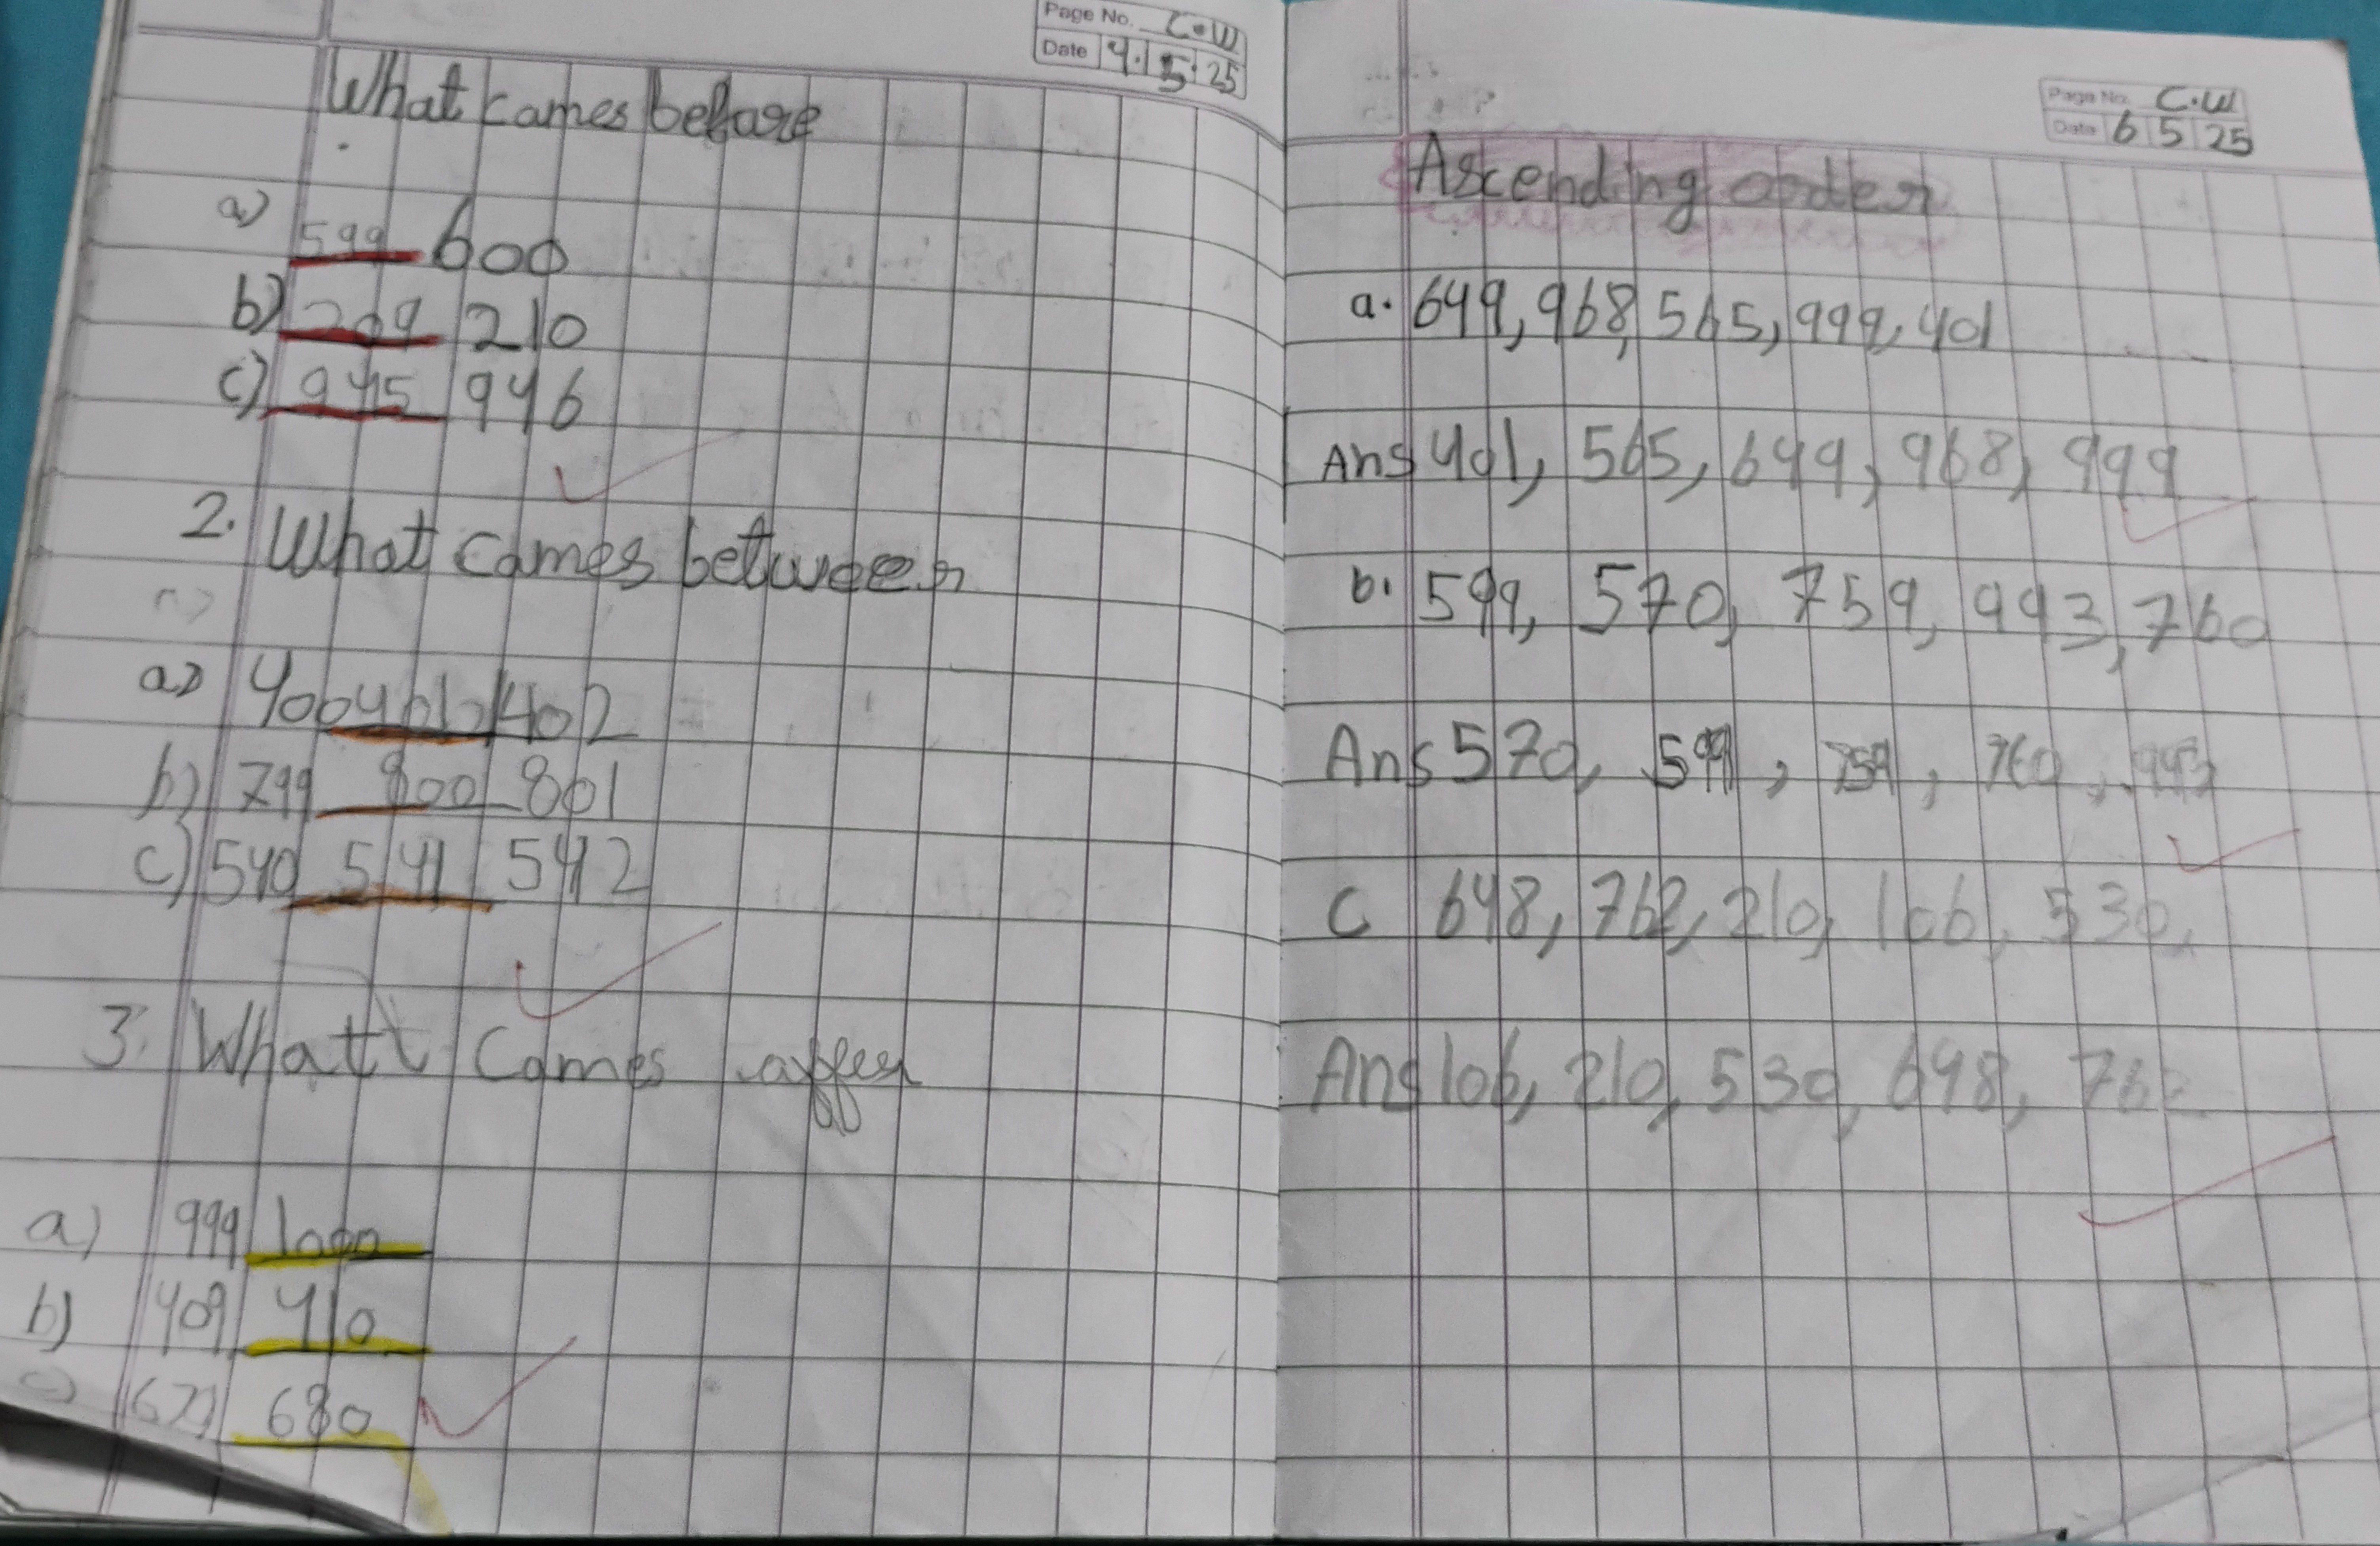 Page No. C.W
Date 4.5.25
What cames before
a) 599 600
b) 209 210
c) 945 946
2. What cames between
a) 400 401 402
b) 799 800 801
c) 540 541 542
3. What cames after
a) 999 1000
b) 409 410
c) 679 680
Page No. C.W
Date 6 5 25
Ascending order
a. 649, 968, 565, 999, 401
Ans 401, 565, 649, 968, 999
b. 599, 570, 759, 993, 760
Ans 570, 599, 759, 760, 993
C 648, 762, 210, 106, 530,
Ans 106, 210, 530, 648, 762